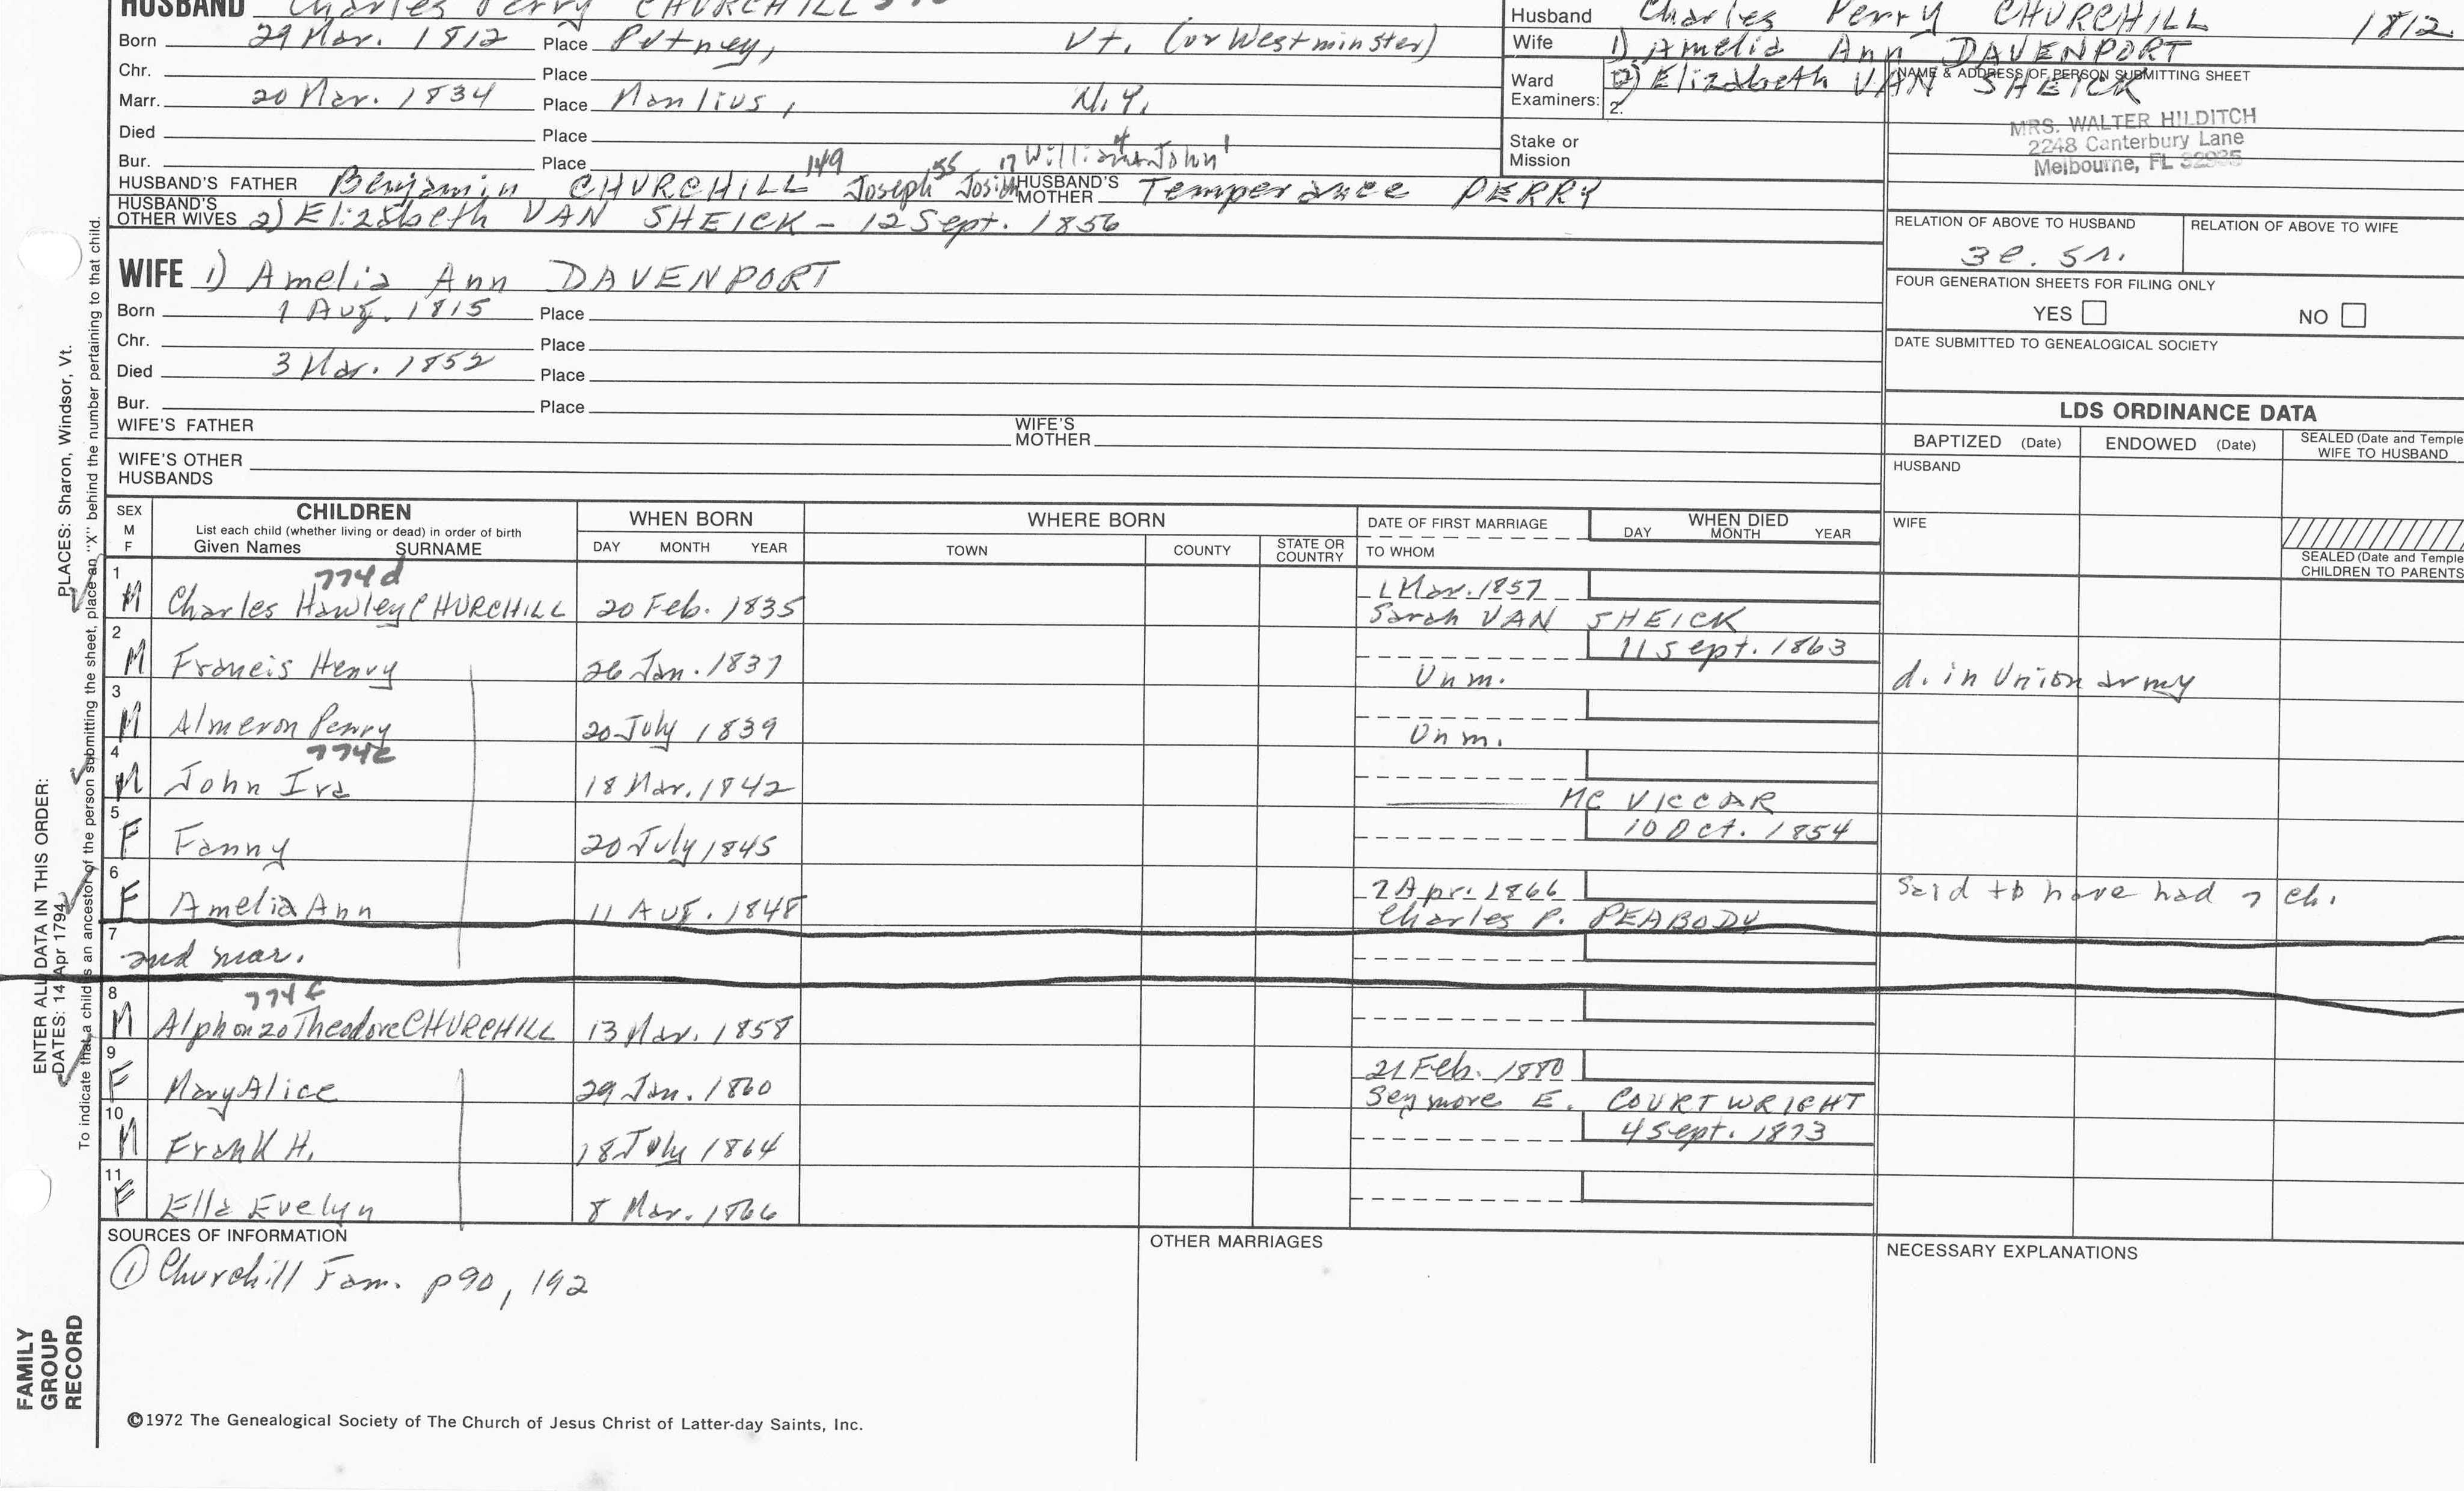 HUSBAND Charles Perry CHURCHILL
Born 29 Mar. 1812 Place Putney, Vt. (or Westminster)
Chr. Place
Marr. 20 Mar. 1834 Place Manlius, N.Y.
Died Place
Bur. Place
HUSBAND'S FATHER Benjamin CHURCHILL 149 Joseph 55 Josiah 17 William 4 John 1 HUSBAND'S MOTHER Temperance PERRY
HUSBAND'S OTHER WIVES 2) Elizabeth VAN SHEICK - 12 Sept. 1856
Husband Charles Perry CHURCHILL 1812
Wife 1) Amelia Ann DAVENPORT
Ward Examiners: 2) Elizabeth VAN SHEICK
2.
Stake or Mission
NAME & ADDRESS OF PERSON SUBMITTING SHEET
MRS. WALTER HILDITCH
2248 Canterbury Lane
Melbourne, FL
RELATION OF ABOVE TO HUSBAND RELATION OF ABOVE TO WIFE
FOUR GENERATION SHEETS FOR FILING ONLY
YES NO
DATE SUBMITTED TO GENEALOGICAL SOCIETY
WIFE 1) Amelia Ann DAVENPORT
Born 1 Aug. 1815 Place
Chr. Place
Died 3 Mar. 1852 Place
Bur. Place
WIFE'S FATHER WIFE'S MOTHER
WIFE'S OTHER HUSBANDS
LDS ORDINANCE DATA
BAPTIZED (Date) ENDOWED (Date) SEALED (Date and Temple WIFE TO HUSBAND
HUSBAND
WIFE
SEALED (Date and Temple CHILDREN TO PARENTS
SEX M F CHILDREN WHEN BORN WHERE BORN DATE OF FIRST MARRIAGE WHEN DIED
List each child (whether living or dead) in order of birth
Given Names SURNAME DAY MONTH YEAR TOWN COUNTY STATE OR COUNTRY TO WHOM DAY MONTH YEAR
774d
1 M Charles Hawley CHURCHILL 20 Feb. 1835 1 Mar. 1857
Sarah VAN SHEICK
2 M Francis Henry 26 Jan. 1837 Unm. 11 Sept. 1863 d. in Union army
3 M Almeron Perry 20 July 1839 Unm.
774e
4 M John Ira 18 Mar. 1842 MC VICCAR
5 F Fanny 20 July 1845 10 Oct. 1854
6 F Amelia Ann 11 Aug. 1848 2 Apr. 1866 Said to have had 7 ch.
Charles P. PEABODY
7 2nd mar.
774f
8 M Alphonzo Theodore CHURCHILL 13 Mar. 1858
9 F Mary Alice 29 Jan. 1860 21 Feb. 1880
Seymore E. COURTWRIGHT
10 M Frank H. 18 July 1864 4 Sept. 1873
11 F Ella Evelyn 8 Mar. 1866
SOURCES OF INFORMATION OTHER MARRIAGES NECESSARY EXPLANATIONS
① Churchill Fam. p90, 192
©1972 The Genealogical Society of The Church of Jesus Christ of Latter-day Saints, Inc.
FAMILY
GROUP
RECORD
ENTER ALL DATA IN THIS ORDER:
DATES: 14 Apr 1794 PLACES: Sharon, Windsor, Vt.
To indicate that a child is an ancestor of the person submitting the sheet, place an "X" behind the number pertaining to that child.